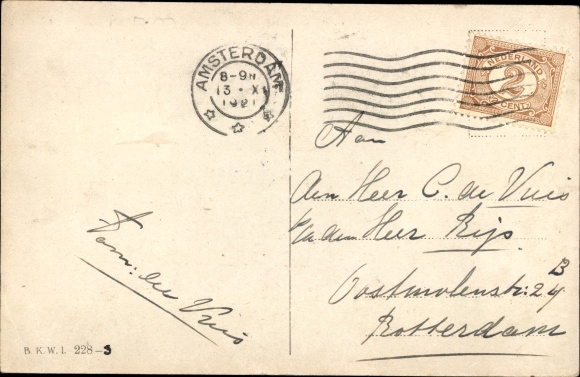 AMSTERDAM
8-9N
13 XI
1921
NEDERLAND
2
CENT
Aan
den Heer C. de Vries
p/a den Heer Rijs
Oostmolenstr: 24 B
Rotterdam
Fam: de Vries
B. K. W. I. 228-3